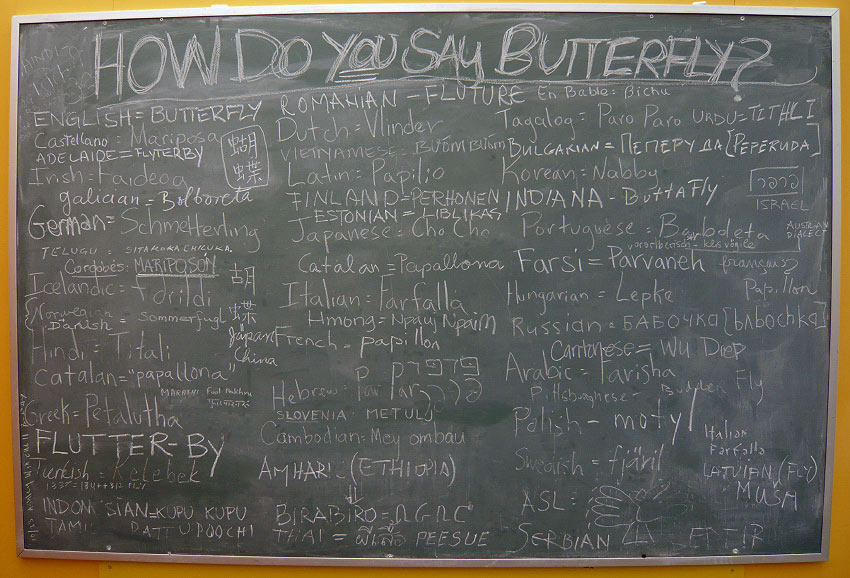 HOW DO YOU SAY BUTTERFLY?
ENGLISH = BUTTERFLY
Castellano = Mariposa
ADELAIDE = FLYTERBY
蝴
蝶
Irish = Faideoa
galician = Bolboreta
German = Schmetterling
TELUGU : SITAKOKA CHILUKA
Cordobés: MARIPOSÓN
Icelandic = fidrildi
胡
蝶
Japan
China
Norwegian =
Danish = Sommerfugl
Hindi = Titali
Catalan = "papallona"
MARATHI
Greek = Petalutha
FLUTTER-BY
Turkish = Kelebek
INDONESIAN = KUPU KUPU
TAMIL PATTUPOOCHI
ROMANIAN - FLUTURE
Dutch = Vlinder
VIETNAMESE = BUOM BUOM
Latin = Papilio
FINLAND = PERHONEN
ESTONIAN = LIBLIKAS
Japanese = Cho Cho
Catalan = Papallona
Italian = Farfalla
Hmong = Npauj Npaim
French = papillon
פרפר
Hebrew = Par Par
SLOVENIA = METULJ
Cambodian = Mey ombau
AMHARIC (ETHIOPIA)
BIRABIRO =
THAI = ผีเสื้อ PEESUE
En Bable = Bichu
Tagalog = Paro Paro
URDU = TITHLI
BULGARIAN = ПЕПЕРУДА [PEPERUDA]
Korean = Nabby
INDIANA - BUTTAFLY
פרפר
ISRAEL
Portuguese = Borboleta
AUSTRIAN
DIALECT
Farsi = Parvaneh
français
Papillon
Hungarian = Lepke
Russian = БАБОЧКА [babochka]
Cantonese = WU Diep
Arabic = Farisha
Pittsburghese - Budder Fly
Polish - motyl
Italian
Farfalla
Swedish = fjäril
LATVIAN (FLY)
MUSA
ASL =
SERBIAN LEPTIR